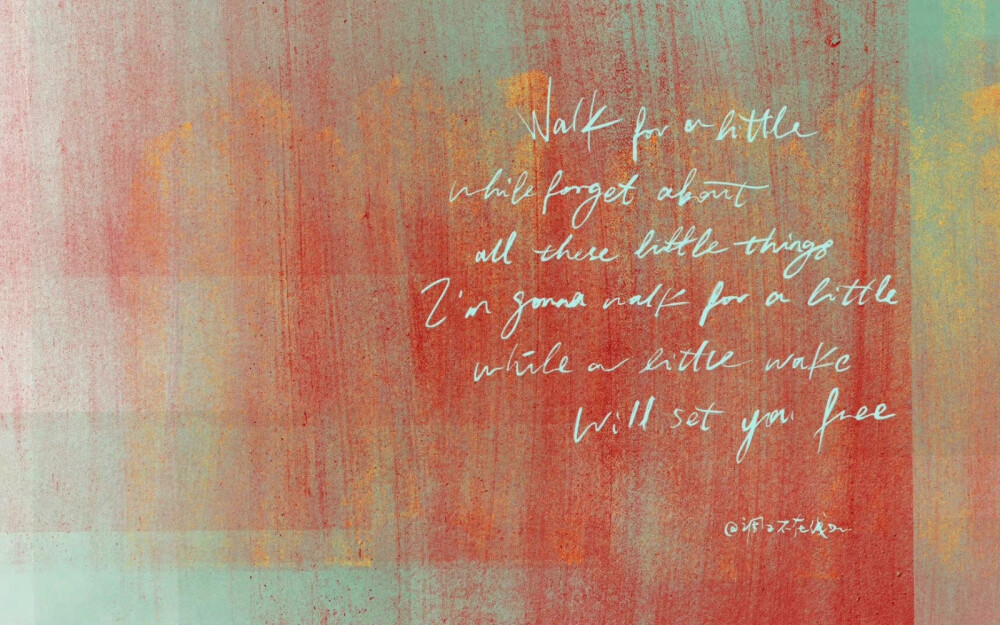 Walk for a little
while forget about
all these little things
I'm gonna walk for a little
while a little wake
Will set you free